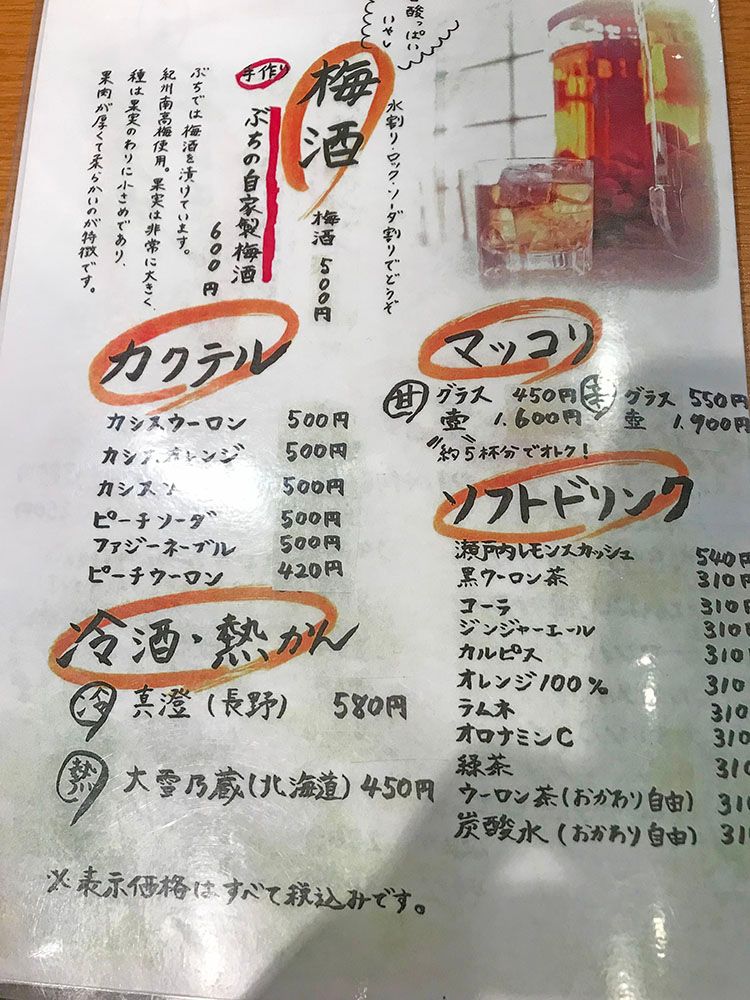 酸っぱい
いやし
梅酒
水割り・ロック・ソーダ割りでどうぞ
梅酒 500円
手作り
ぶちの自家製梅酒
600円
ぶちでは梅酒を漬けています。
紀州南高梅使用。果実は非常に大きく、
種は果実のわりに小さめであり、
果肉が厚くて柔らかいのが特徴です。
カクテル
カシスウーロン 500円
カシスオレンジ 500円
カシスソ 500円
ピーチソーダ 500円
ファジーネーブル 500円
ピーチウーロン 420円
冷酒・熱かん
冷 真澄(長野) 580円
熱 大雪乃蔵(北海道) 450円
※表示価格はすべて税込みです。
マッコリ
甘 グラス 450円 グラス 550円
壺 1.600円 壺 1.900円
約5杯分でオトク!
ソフトドリンク
瀬戸内レモンスカッシュ 540円
黒ウーロン茶 310円
コーラ 310円
ジンジャーエール 310円
カルピス 310円
オレンジ100% 310
ラムネ 310
オロナミンC 310
緑茶 310
ウーロン茶(おかわり自由) 310
炭酸水(おかわり自由) 310